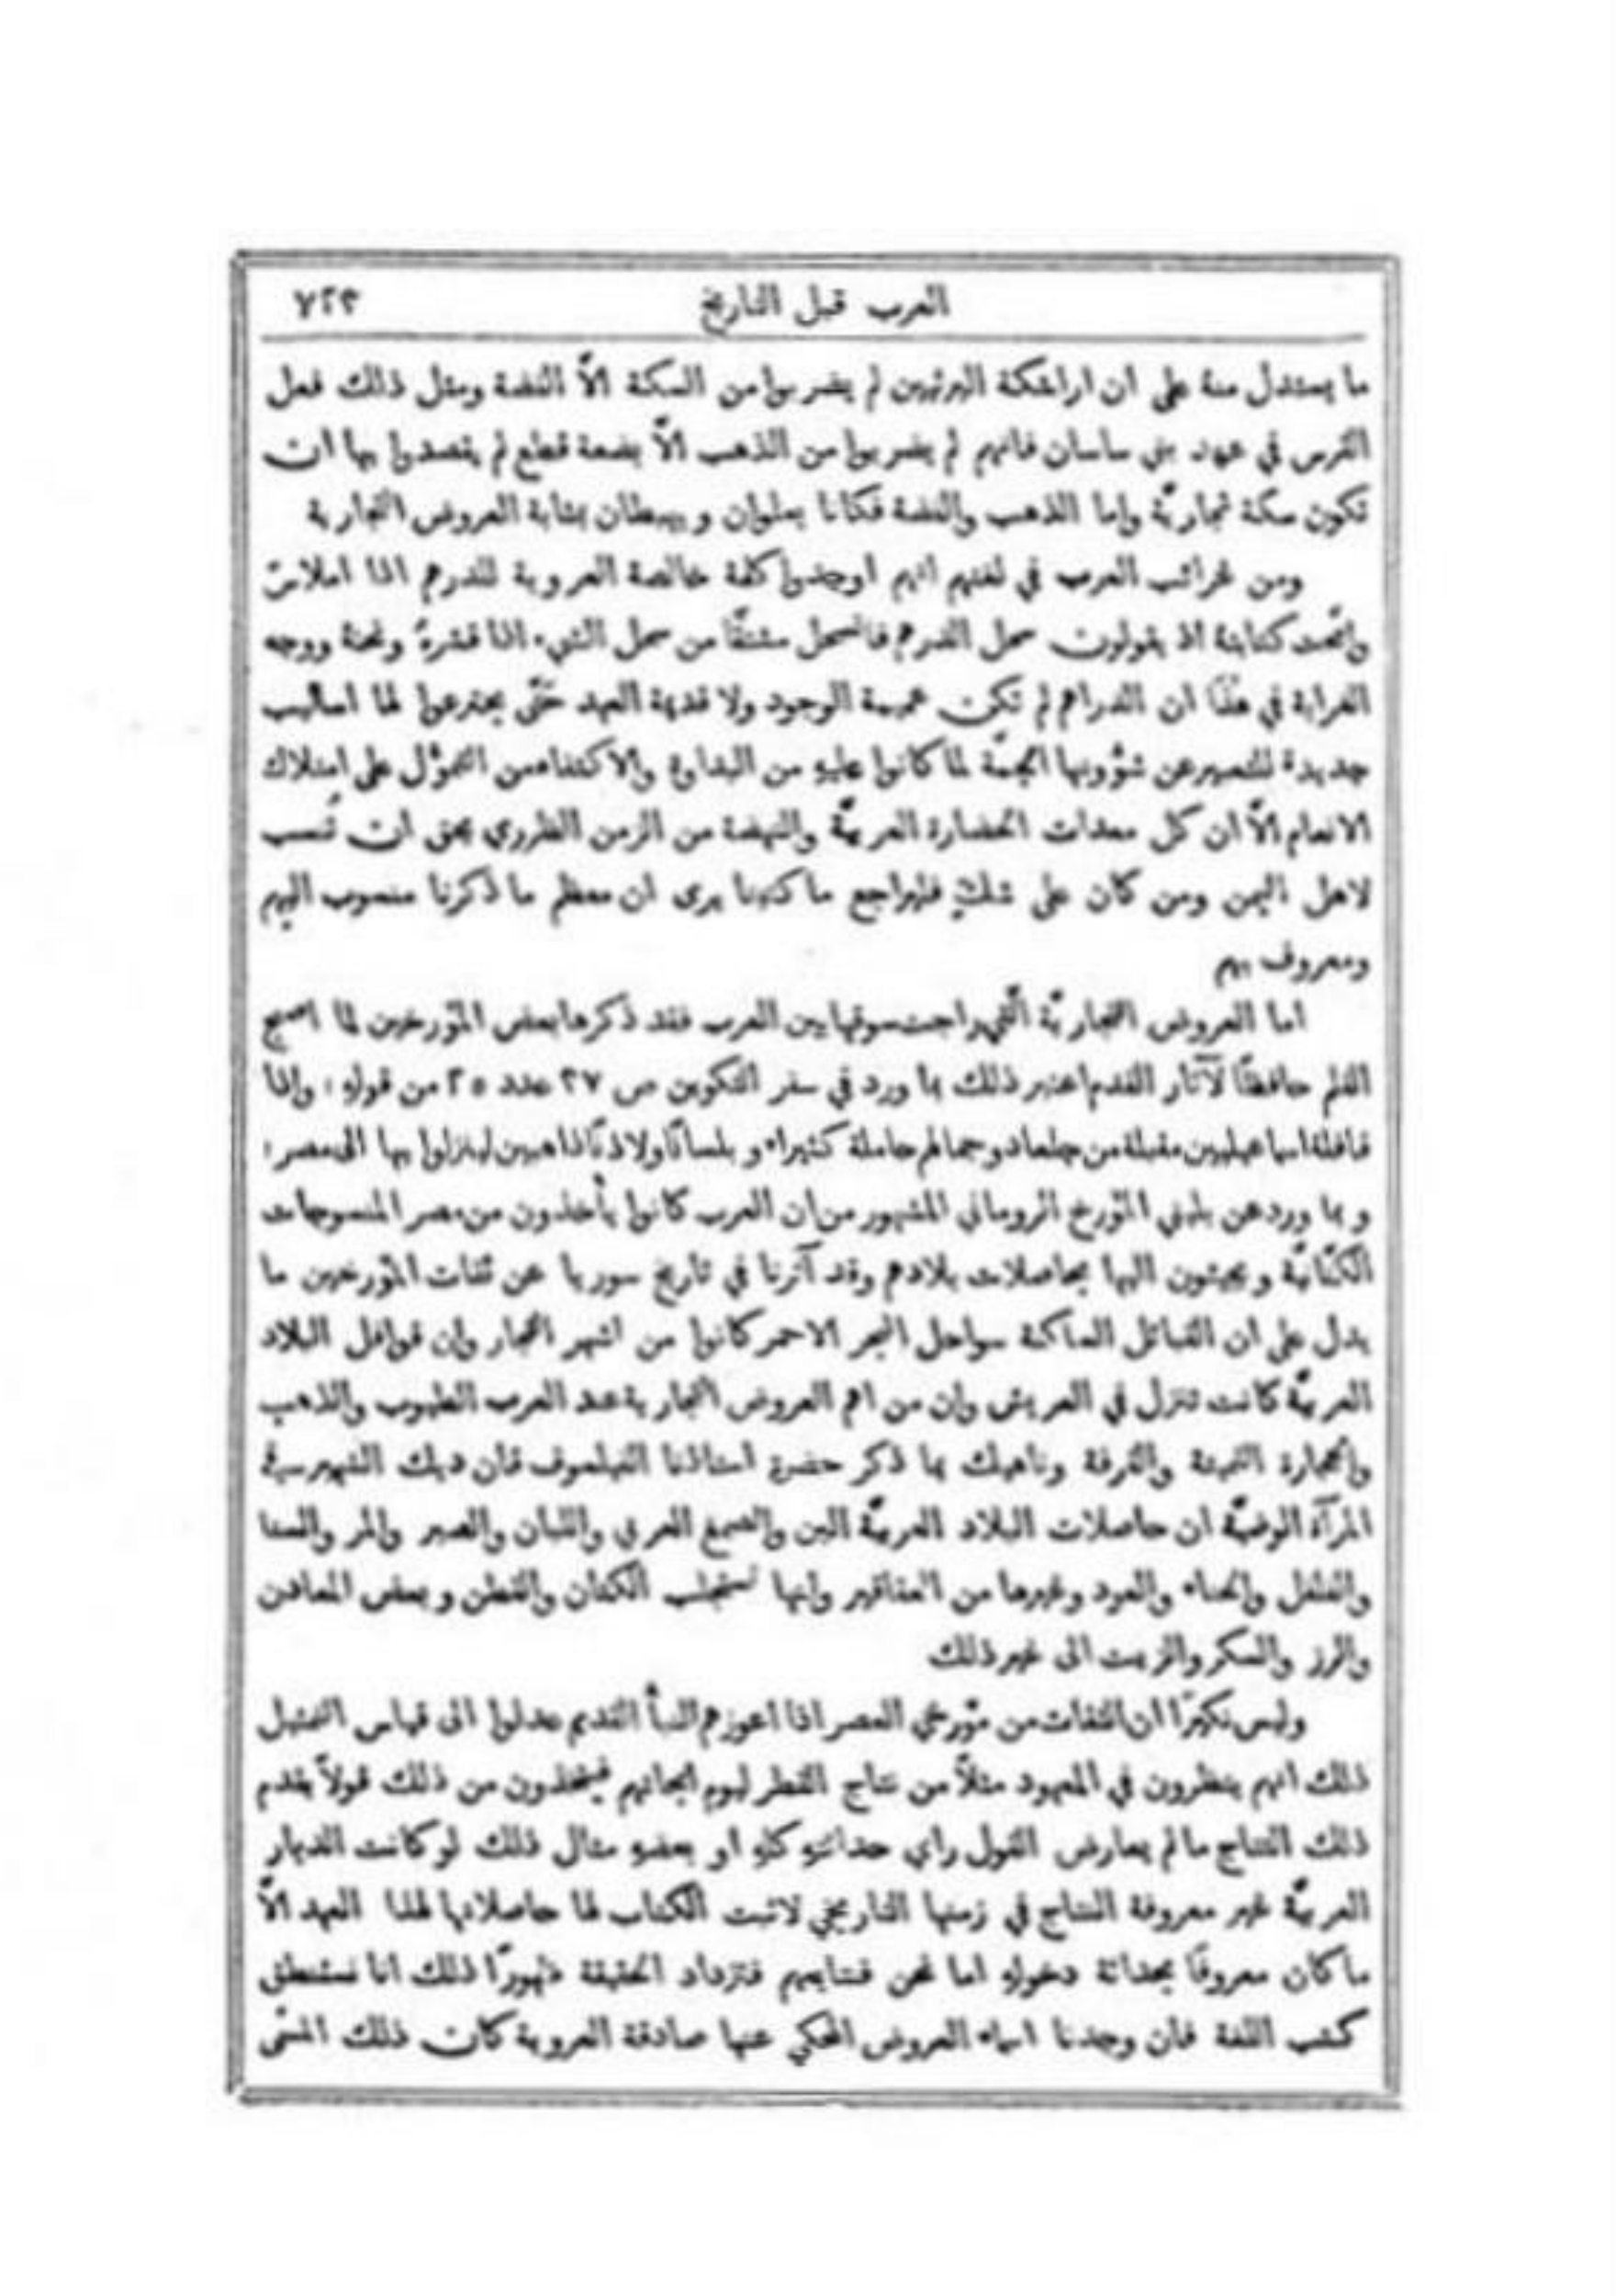 العرب قبل التاريخ ٧٢٣
ما يستدل منهُ على ان اراشكة البرثيين لم يضربوا من السكة الاّ الفضة ومثل ذلك فعل
الفرس في عهد بني ساسان فانهم لم يضربوا من الذهب الاّ بضعة قطع لم يقصدوا بها ان
تكون سكة تجاريَّة واما الذهب والفضة فكانا يعلوان ويهبطان بمثابة العروض التجارية
ومن غرائب العرب في لغتهم انهم اوجدوا كلمة خالصة العروبة للدرهم اذا املاسّ
وانمحت كتابتهُ اذ يقولون سحل الدرهم فانسحل مشتقًّا من سحل الشيء اذا قشرهُ ونحتهُ ووجه
الغرابة في هذا ان الدراهم لم تكن عميمة الوجود ولا قديمة العهد حتَّى يخترعوا لها اساليب
جديدة للتعبير عن شؤُونها الجمَّة لما كانوا عليهِ من البداوة والاكتفاء من التموُّل على امتلاك
الانعام الاّ ان كل معدات الحضارة العربيَّة والنهضة من الزمن الفطري يحق ان تُنسب
لاهل اليمن ومن كان على شكٍّ فليراجع ما كتبنا يرى ان معظم ما ذكرنا منسوب اليهم
ومعروف بهم
اما العروض التجاريَّة الَّتي راجت سوقها بين العرب فقد ذكرها بعض المؤرخين لما اصبح
القلم حافظًا لآثار القدم اعتبر ذلك بما ورد في سفر التكوين ص ٣٧ عدد ٢٥ من قولهِ : واذا
قافلة اسماعيليين مقبلة من جلعاد وجمالهم حاملة كثيراء وبلسانًا ولاذنًا ذاهبين لينزلوا بها الى مصر :
وبما ورد عن بليني المؤرخ الروماني المشهور من ان العرب كانوا يأخذون من مصر المنسوجات
الكتَّانيَّة ويجيئون اليها بحاصلات بلادهم وقد آثرنا في تاريخ سوريا عن ثقات المؤرخين ما
يدل على ان القبائل الساكنة سواحل البحر الاحمر كانوا من اشهر التجار وان قوافل البلاد
العربيَّة كانت تنزل في العريش وان من اهم العروض التجارية عند العرب الطيوب والذهب
والحجارة الثمينة والقرفة وناهيك بما ذكر حضرة استاذنا الفيلسوف فان ديك الشهير في
المرآة الوضيَّة ان حاصلات البلاد العربيَّة البن والصمغ العربي واللبان والصبر والمر والسنا
والفلفل والحناء والعود وغيرها من العقاقير وانها تستجلب الكتان والقطن وبعض المعادن
والرز والسكر والزيت الى غير ذلك
وليس نكيرًا ان الثقات من مؤرخي العصر اذا اعوزهم النبأ القديم عدلوا الى قياس التمثيل
ذلك انهم ينظرون في المعهود مثلاً من نتاج القطر ليوم ابحاثهم فيتخذون من ذلك قولاً بقدم
ذلك النتاج ما لم يعارض القول راي حداثتهِ كلهِ او بعضهِ مثال ذلك لو كانت الديار
العربيَّة غير معروفة النتاج في زمنها التاريخي لاثبت الكتاب لها حاصلاتها لهذا العهد الاّ
ما كان معروفًا بحداثة دخولهِ اما نحن فنتابعهم فتزداد الحقيقة ظهورًا ذلك انا نستنطق
كتب اللغة فان وجدنا اسماء العروض المحكي عنها صادقة العروبة كان ذلك المسمَّى